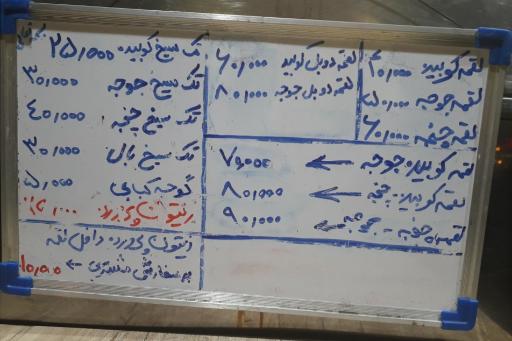 لقمه کوبیده ۴۰,۰۰۰
لقمه جوجه ۵۰,۰۰۰
لقمه چنجه ۶۰,۰۰۰
لقمه دوبل کوبیده ۶۰,۰۰۰
لقمه دوبل جوجه ۸۰,۰۰۰
لقمه کوبیده جوجه ← ۷۰,۰۰۰
لقمه کوبیده چنجه ← ۸۰,۰۰۰
جوجه - چنجه ← ۹۰,۰۰۰
تک سیخ کوبیده ۲۵,۰۰۰
تک سیخ جوجه ۳۰,۰۰۰
تک سیخ چنجه ۴۰,۰۰۰
تک سیخ بال ۳۰,۰۰۰
گوجه کبابی ۵,۰۰۰
زیتون
زیتون داخل لقمه
به سفارش مشتری ← ۱۰,۰۰۰